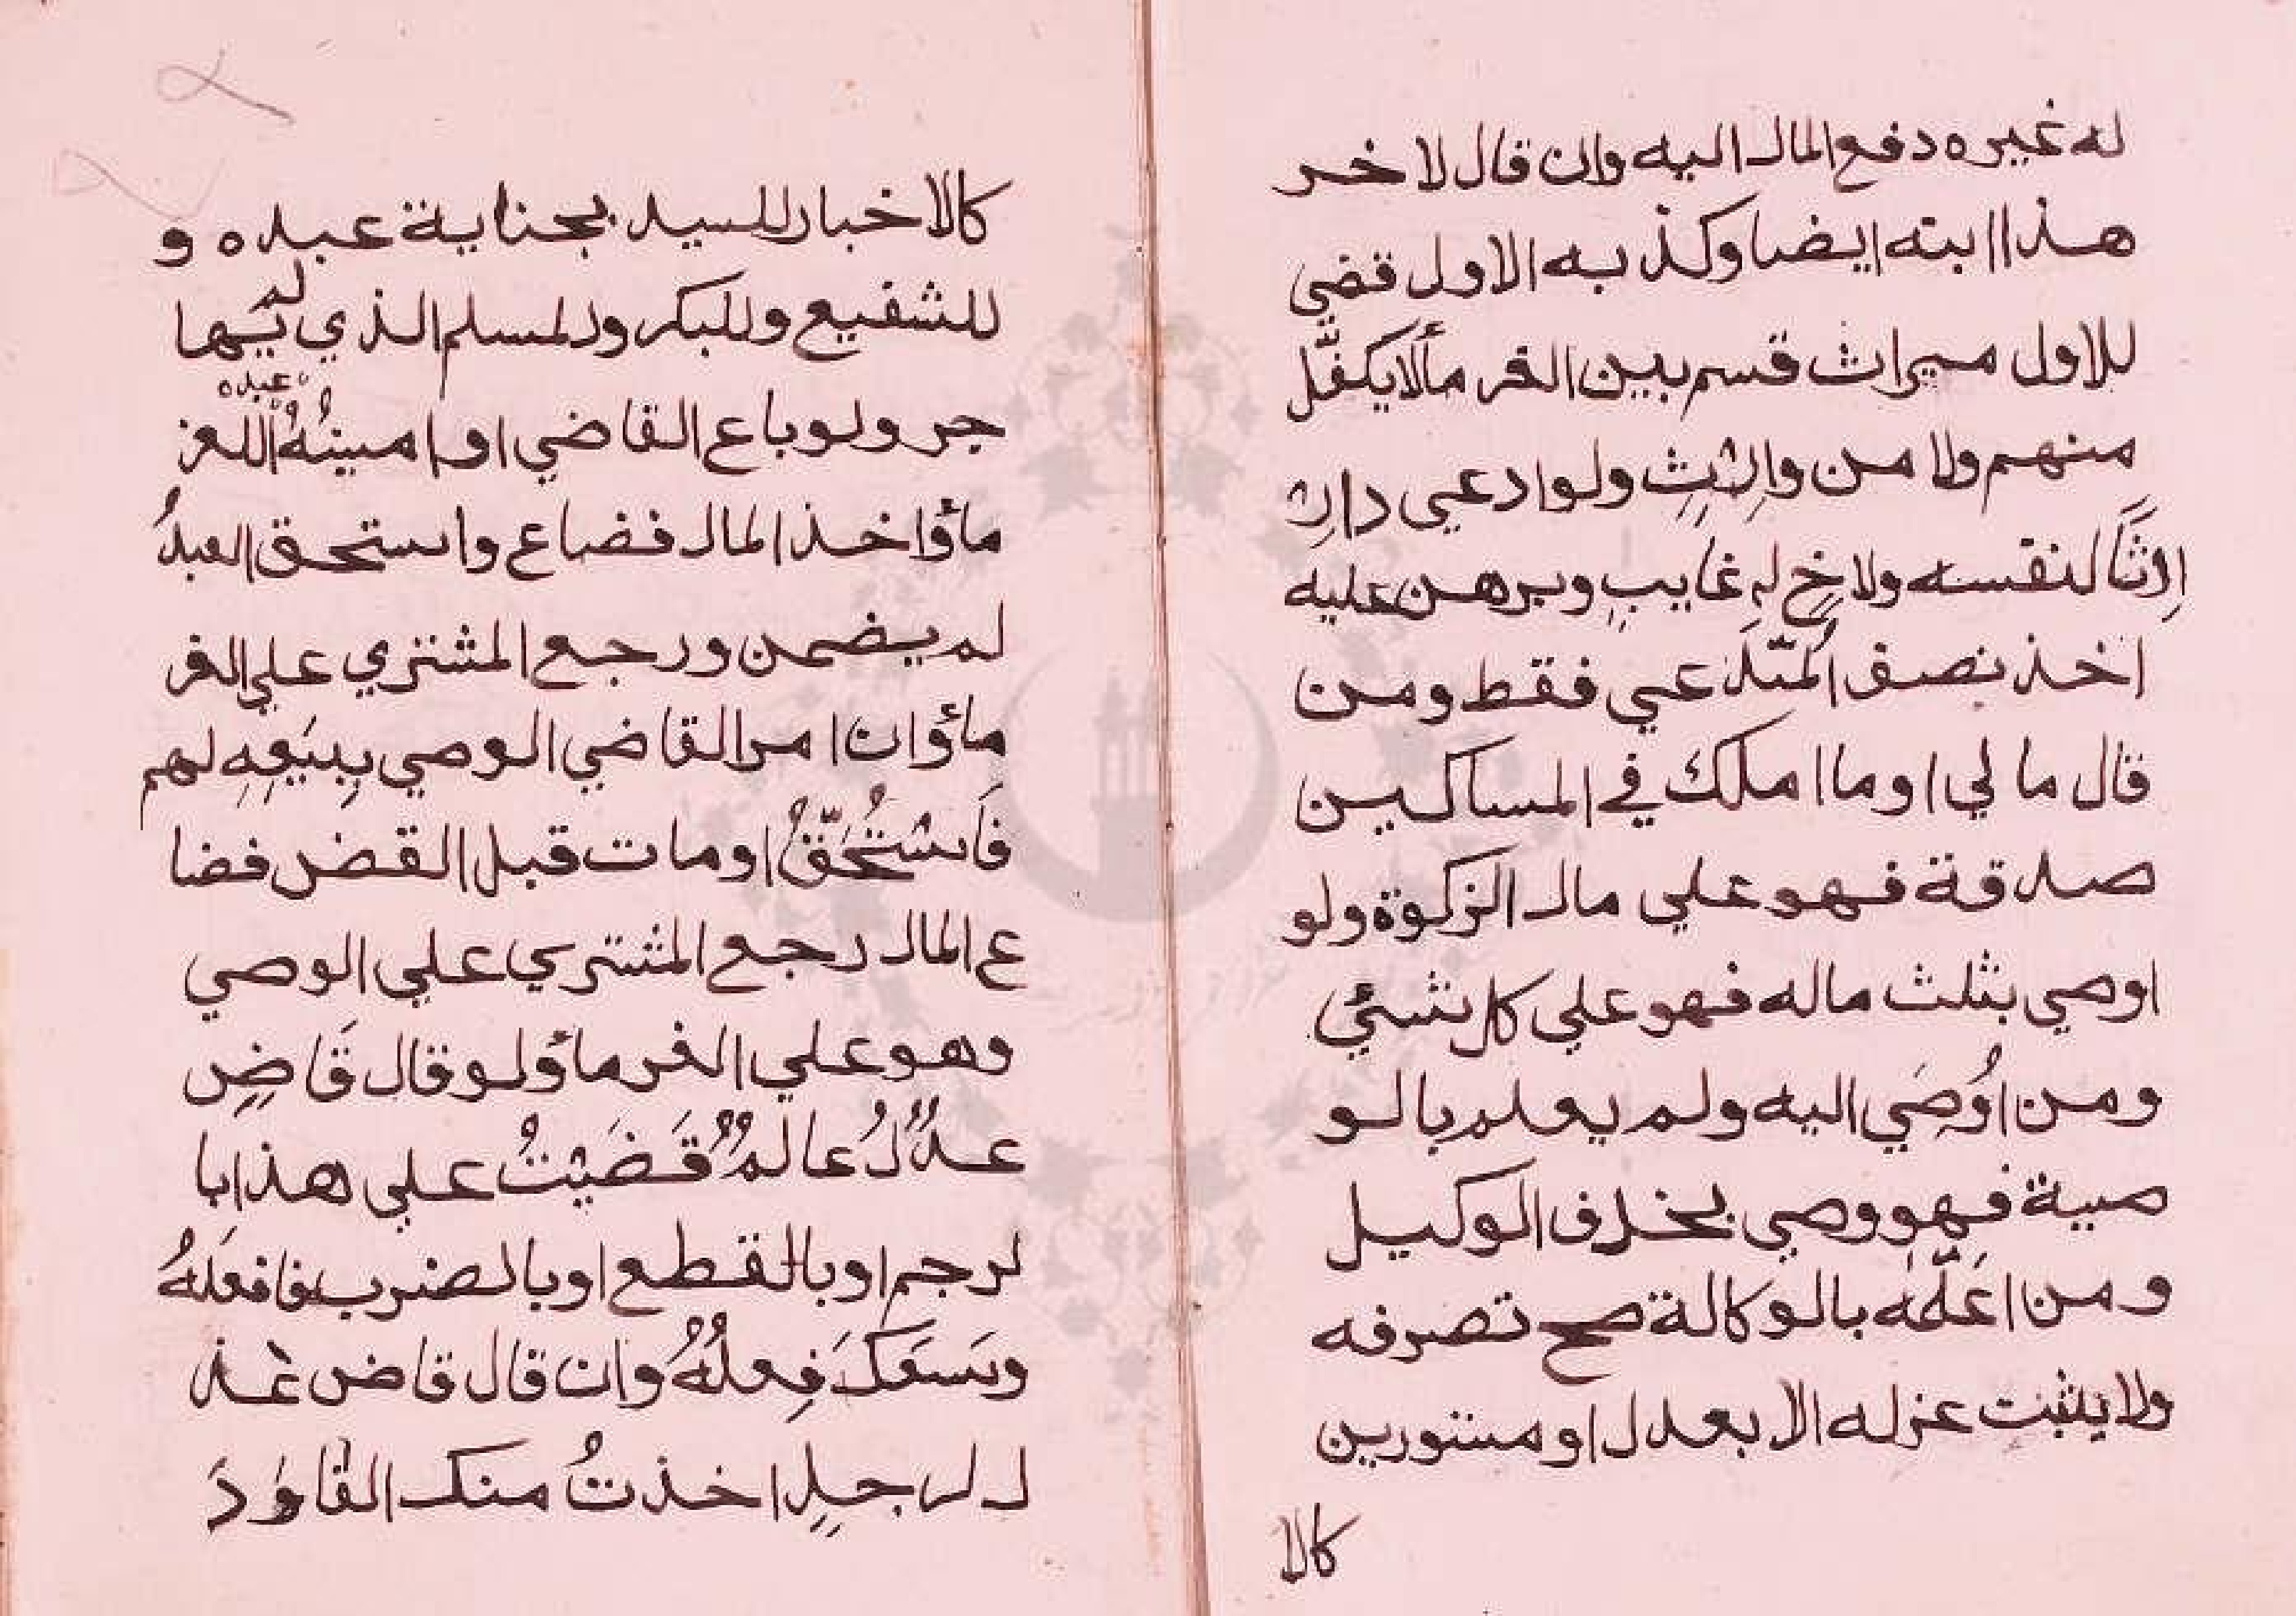 له غيره دفع المال اليه وان قال لاخر
هذا ابنه ايضا وكذبه الاول قضي
للاول ميراث قسم بين الغرمألا يكفّل
منهم ولا من وارِثٍ ولو ادعي دارا
اِرثًا لنفسه ولاخٍ لهِ غايبٍ وبرهن عليه
اخذ نصف المُدّعي فقط ومن
قال مالي او ما املك في المساكين
صدقة فهو علي مال الزكوة ولو
اوصي بثلث ماله فهو علي كل شئي
ومن اُوصَي اليه ولم يعلم بالو
صية فهو وصي بخلاف الوكيل
ومن اعَلّمَه بالوكالة صح تصرفه
ولا يثبت عزله الا بعدل او مستورين
كالا
كالاخبار للسيد بجناية عبده و
للشفيع وللبكر ولمسلم الذي لم يُها
جر ولو باع القاضي او امينُهُ للغر
عبده
مأوٴاخذ المال فضاع واستحق العبدُ
لم يضمن ورجع المشتري علي الغر
مأوٴان امر القاضي الوصي بِبَيعِهِ لهم
فَاستُحَقّ او مات قبل القبض فضا
ع المال رجع المشتري علي الوصي
وهو علي الغرمأوٴلو قال قَاضٍ
عدلٌ عالمٌ قَضَيْتُ علي هذا با
لرجم او بالقطع او بالضرب فافعَلهُ
وسَعَكَ فِعلُهُ وان قال قاض عُذ
ل لرجلٍ اخذتُ منك القًاوٴدَ